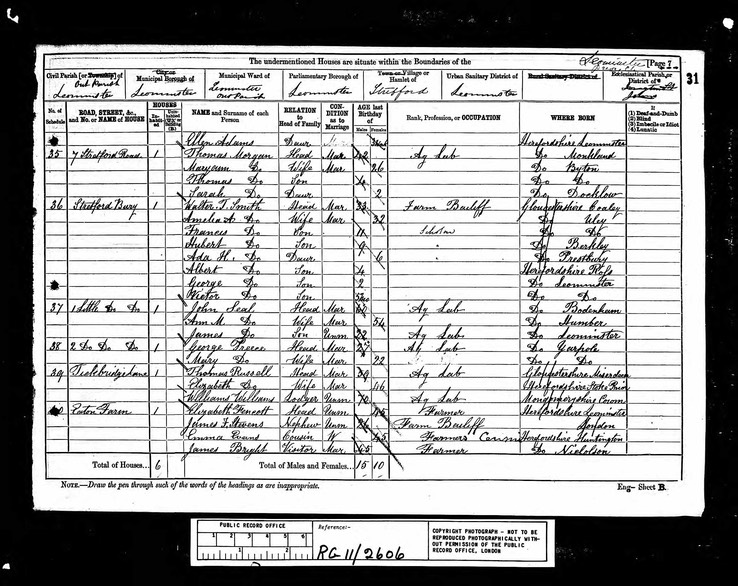 The undermentioned Houses are situate within the Boundaries of the
[Page 7
31
Civil Parish [or Township] of
City or Municipal Borough of
Municipal Ward of
Parliamentary Borough of
Town or Village or Hamlet of
Urban Sanitary District of
Rural Sanitary District of
Ecclesiastical Parish or District of
Out Parish Leominster
Leominster
Leominster Out Parish
Leominster
Stretford
Leominster
No. of Schedule
ROAD, STREET, &c., and No. or NAME of HOUSE
HOUSES
Inhabited
Uninhabited (U.), or Building (B.)
NAME and Surname of each Person
RELATION to Head of Family
CONDITION as to Marriage
AGE last Birthday of
Males
Females
Rank, Profession, or OCCUPATION
WHERE BORN
If
(1) Deaf-and-Dumb
(2) Blind
(3) Imbecile or Idiot
(4) Lunatic
Ellen Adams Daur Herefordshire Leominster
35 7 Stretford Road 1 Thomas Morgan Head Mar Ag Lab Do Monkland
Maryann Do Wife Mar 26 Do Byton
Thomas Do Son 4 Do Do
Sarah Do Daur 2 Do Docklow
36 Stretford Bury 1 Walter T. Smith Head Mar 33 Farm Bailiff Gloucestershire Coaley
Amelia A. Do Wife Mar 32 Do Uley
Frances Do Son 11 Scholar Do Do
Hubert Do Son 9 " Do Berkley
Ada H. Do Daur 6 " Do Prestbury
Albert Do Son 4 Herefordshire
George Do Son 2 Do Leominster
Victor Do Son Do Do
37 1 Little Do Do 1 John Seal Head Mar Ag Lab Do Bodenham
Ann M. Do Wife Mar 54 Do Humber
James Do Son Unm 22 Ag Lab Do Leominster
38 2 Do Do Do 1 George Preece Head Mar Ag Lab Do Yarpole
Mary Do Wife Mar 22 Do Do
39 1 Thomas Russell Head Mar 39 Ag Lab Gloucestershire Miserden
Elizabeth Do Wife Mar 46 Herefordshire Stoke Prior
Williams Williams Lodger Unm 70 Ag Lab Montgomeryshire
40 Eaton Farm 1 Elizabeth Head Unm Farmer Herefordshire Leominster
James F. Stevens Nephew Unm Farm Bailiff London
Emma Evans Cousin W 45 Farmers Herefordshire Huntington
James Bright Visitor Mar 65 Farmer Do
Total of Houses... 6
Total of Males and Females... 15 10
NOTE.—Draw the pen through such of the words of the headings as are inappropriate.
Eng—Sheet B.
PUBLIC RECORD OFFICE
1 2 3 4 5 6
1 2
Reference:-
RG 11/2606
COPYRIGHT PHOTOGRAPH - NOT TO BE
REPRODUCED PHOTOGRAPHICALLY WITH-
OUT PERMISSION OF THE PUBLIC
RECORD OFFICE, LONDON